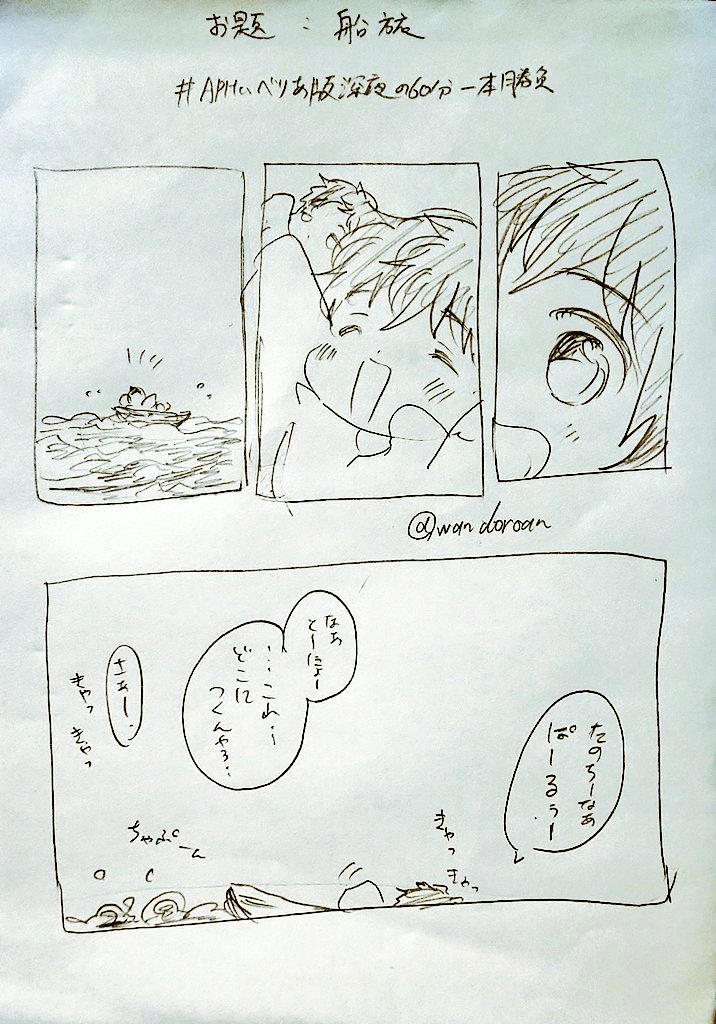 お題：船旅
#APHいべりあ版深夜の60分一本勝負
@wandoroan
たのちーなあ
ぱーるぅー
きゃっ
きゃっ
なあ
とーにょー
…これ…
どこに
つくんやろ…
さぁー…
きゃっ
きゃっ
ちゃぷーん